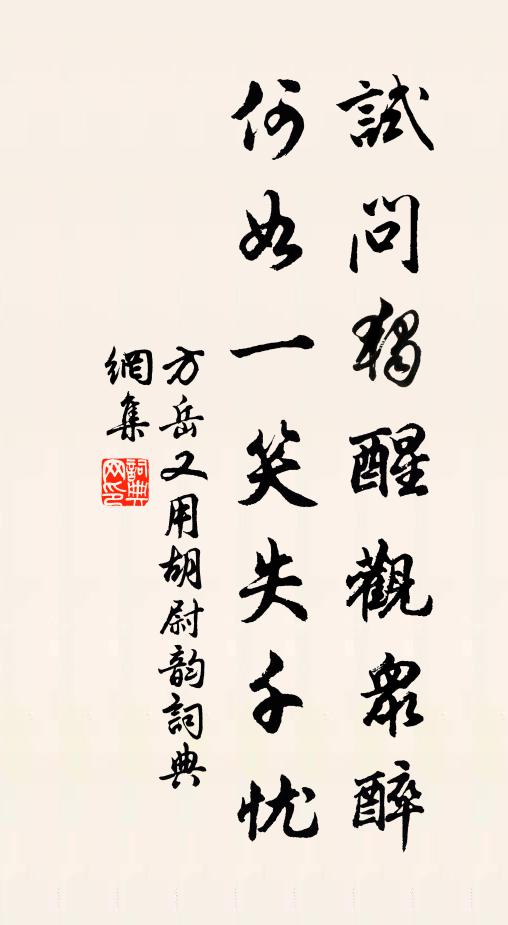 試問獨醒觀衆醉
何如一笑失千忧
方岳又用胡尉韵詞典
網集
詞典
网印